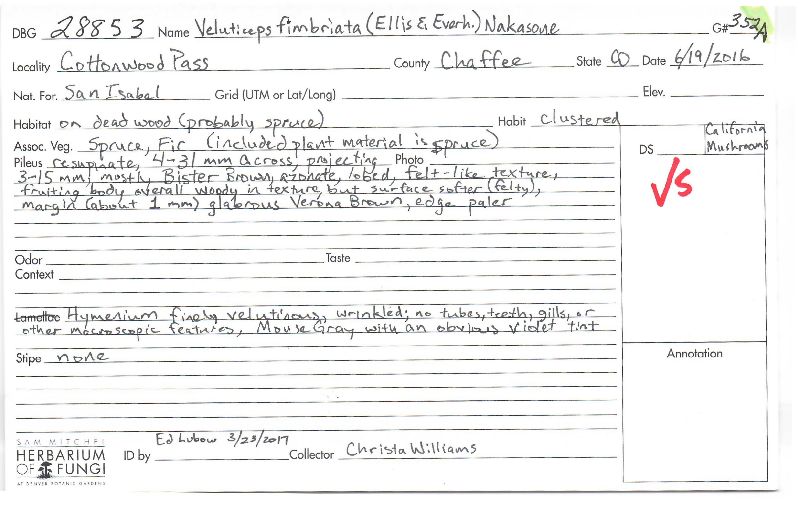 DBG 28853 Name Veluticeps fimbriata (Ellis & Everh.) Nakasone G# 352A
Locality Cottonwood Pass County Chaffee State CO Date 6/19/2016
Nat. For. San Isabel Grid (UTM or Lat/Long) Elev.
Habitat on dead wood (probably spruce) Habit clustered
Assoc. Veg. Spruce, Fir (included plant material is spruce)
DS California Mushrooms
Pileus resupinate, 4-31 mm across, projecting Photo
3-15 mm; mostly Bister Brown, azonate, lobed, felt-like texture,
fruiting body overall woody in texture, but surface softer (felty),
margin (about 1 mm) glabrous Verona Brown, edge paler
√S
Odor Taste
Context
Lamellae Hymenium finely velutinous, wrinkled; no tubes, teeth, gills, or
other macroscopic features, Mouse Gray with an obvious violet tint
Stipe none
Annotation
SAM MITCHEL
HERBARIUM
OF FUNGI
AT DENVER BOTANIC GARDENS
ID by Ed Lubow 3/23/2017 Collector Christa Williams